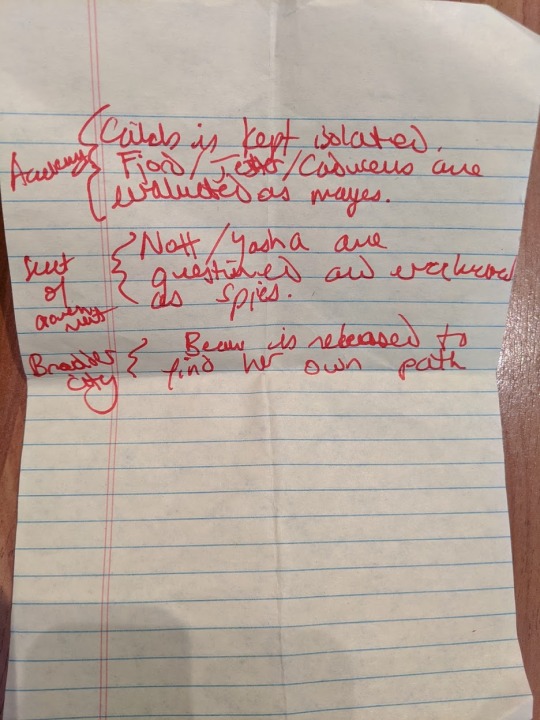 Caleb is kept isolated.
Academy Fjord/Jester/Caduceus are
evaluated as mages.
Nott/Yasha are
questioned and
of as spies.
Beau is released to
Broader city find her own path